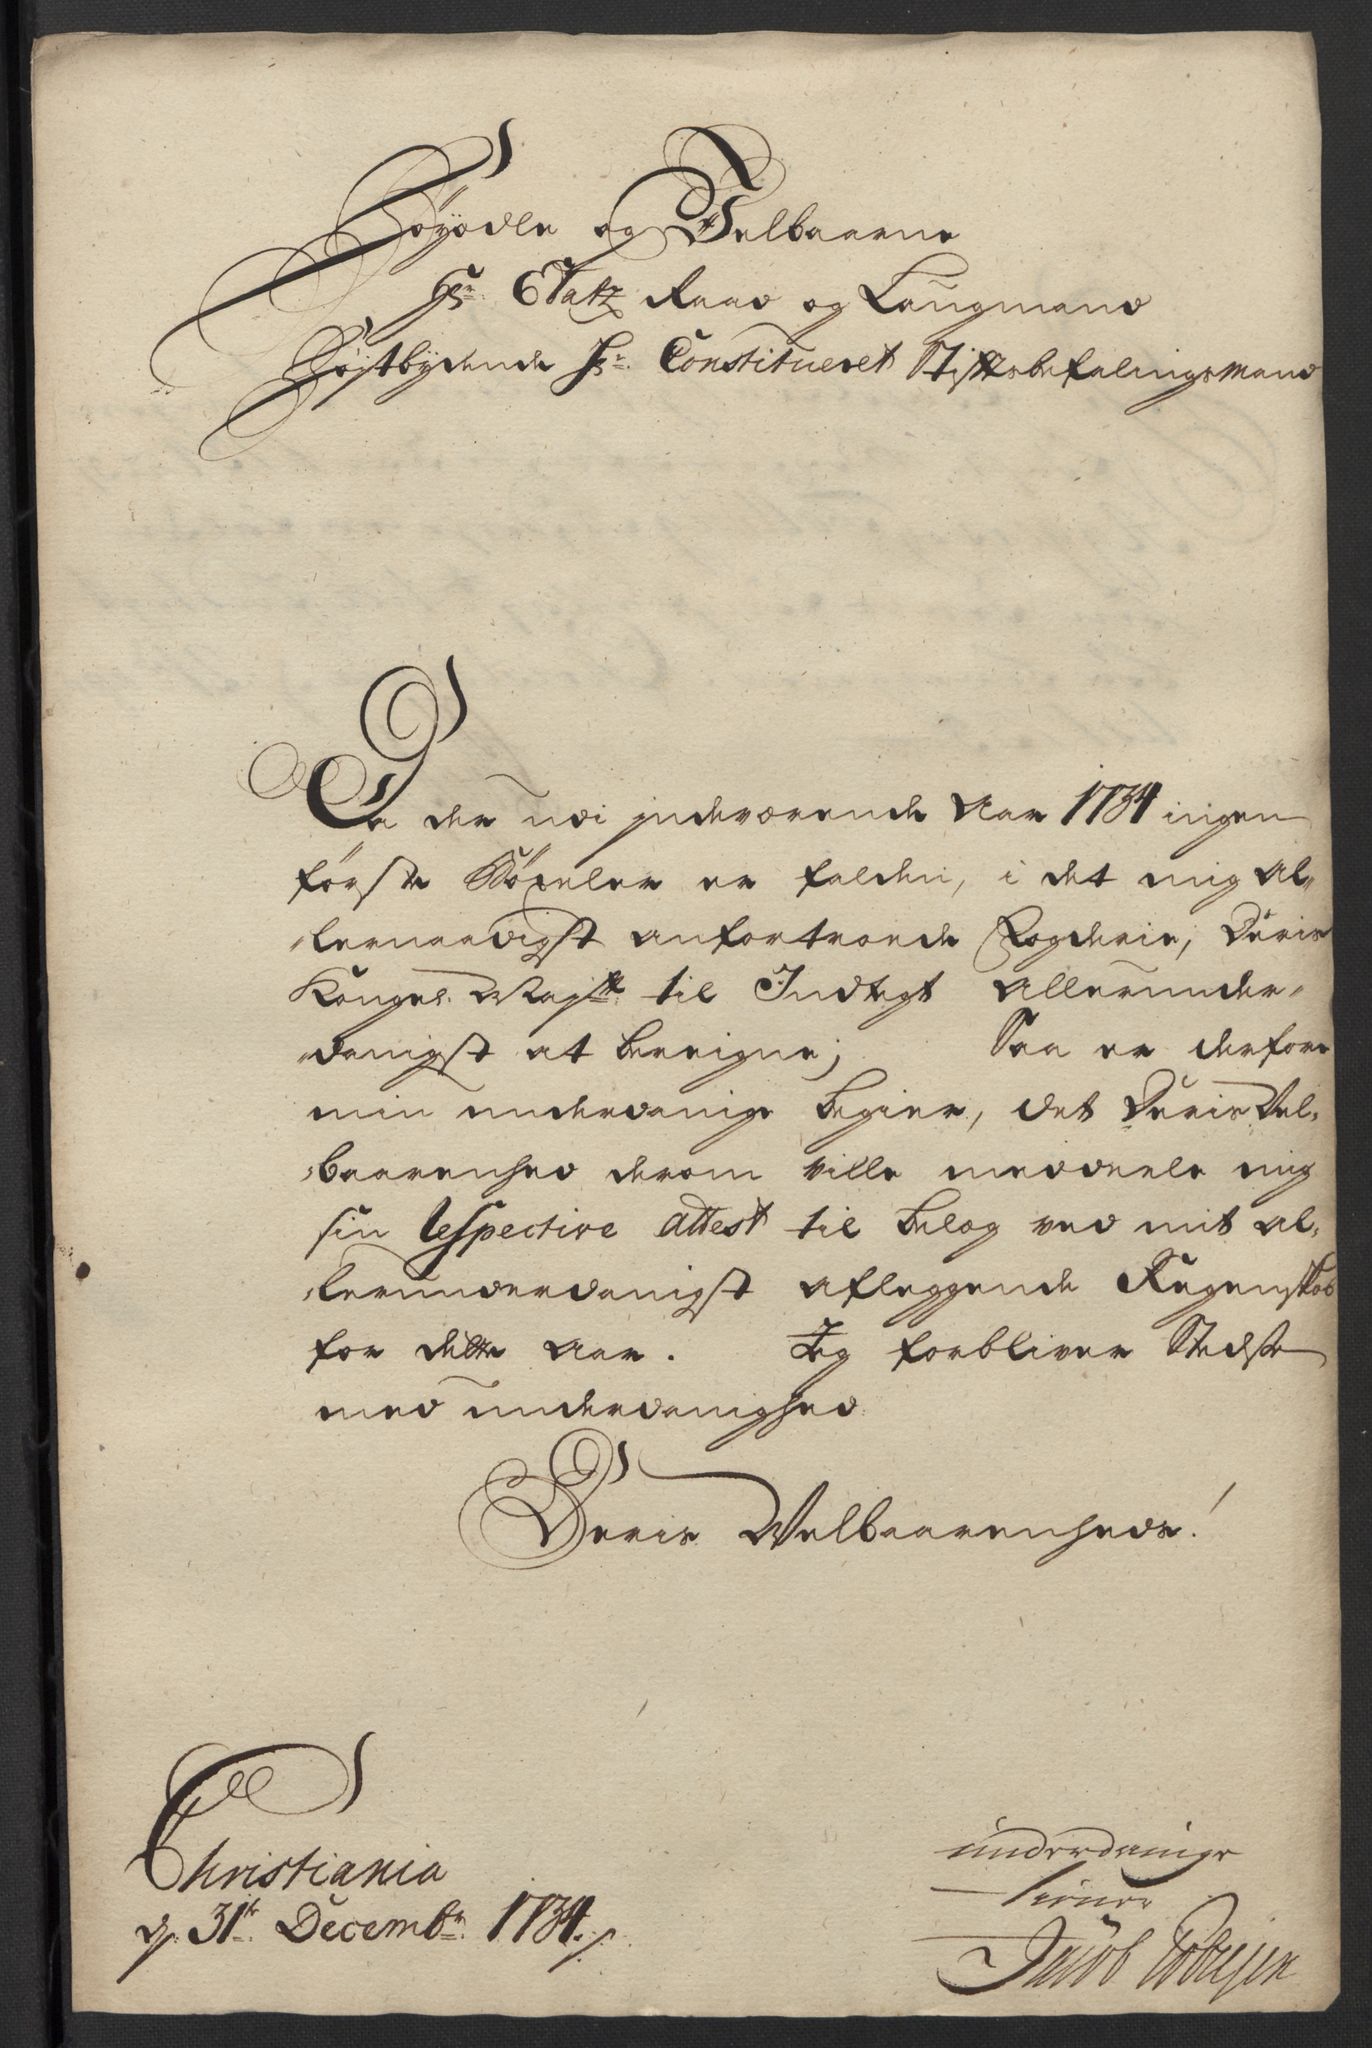 Høyædle og Velbaarne
Hr: Etatz Raad og Laugmand
Høystbydende Hr: Constitueret Stiftsbefalingsmand
Da der udi indeværende Aar 1734 ingen
første Bøxeler er falden, i det mig al-
lernaadigst anfortroede Fogderie, Deris
Kongel: Mayst: til Indtegt allerunder-
danigst at bereigne; Saa er derfore
min underdanige begier, det Deris Vel-
baarenhed derom ville meddeele mig
sin respective attest til belæg ved mit al-
lerunderdanigst aflæggende Regenskab
for dette Aar. Jeg forbliver Stedse
med underdanighed
Deris Velbaarenheds!
Christiania
d. 31te Decembr: 1734.
underdanige
tiener
Jacob